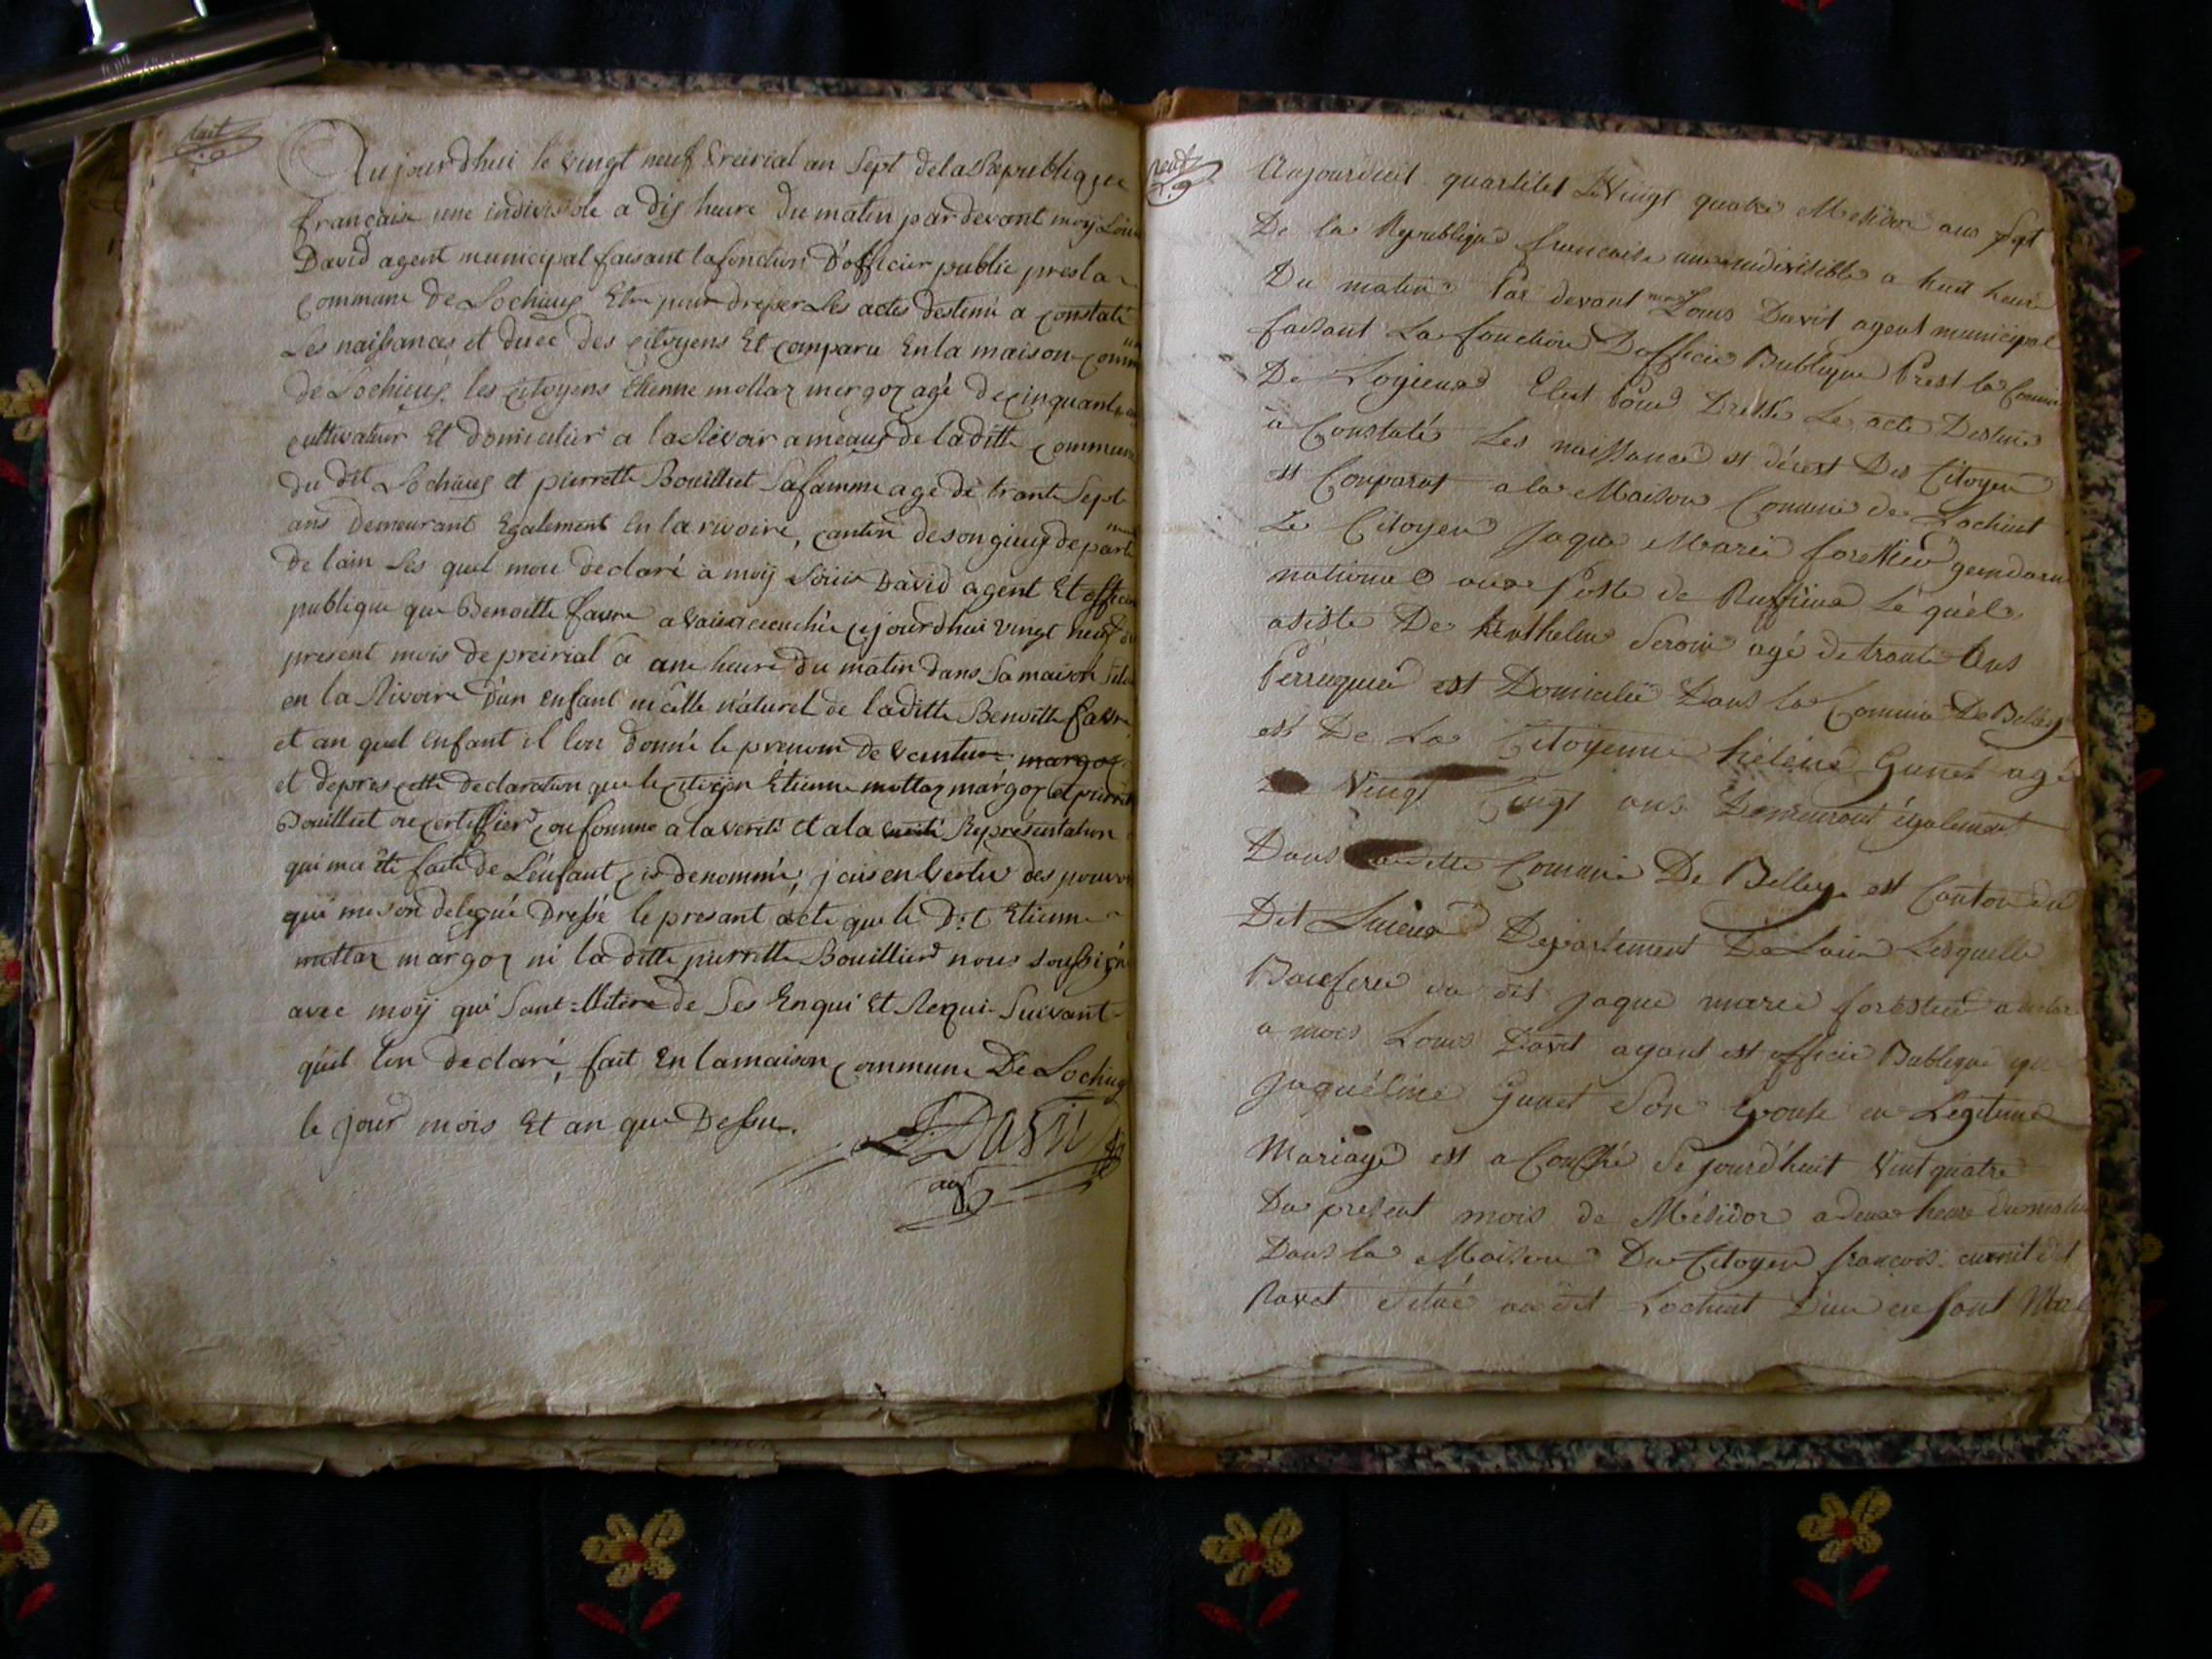 huit
Aujourdhui le vingt neuf Preirial an Sept dela Republique
française une indivisible a dis heure du matin par devant moÿ Loui
David agent municipal faisant lafonction D'officier public presla
commune de Lochieus Elu pour dresser Les actes destiné a constaté
Les naissances et ducé des citoyens Et comparu En la maison comm
de Lochieus les citoyens Etienne mottaz margoz agé de cinquante
cultivateur Et domicilier a la Rivoir ameaus de laditte commune
du dit Lochieus et pierrette Bouilliet Safamme age de trante Sept
ans demeurant Egalement En la rivoire, canton desongieus departe
de lain Les quel mon declaré a moÿ Louis David agent Et officier
publique que Benoitte favre a vai accouchée cejourdhui vingt neuf du
present mois de preirial a une heure du matin dans Sa maison
en la Rivoire D'un enfant malle naturel de laditte Benoitte favre
et au quel enfant il lon donné le prenom de venture margoz
et depres cette declaration que le citoyen Étienne mottaz margoz et pierrette
Bouilliet on certiffier conforme a la verité et a la verité Représentation
qui ma eté faite de L'enfant ci denommé, j'ais en vertu des pouvoi
qui me son delegué Dressé le presant acte que le Dit Etienne
mottaz margoz ni la ditte pierrette Bouillier nous soussigné
avec moÿ qui Sont de Ses Enqui Et Requi Suivant
quil lon declaré, fait En lamaison commune De Lochieu
le jour mois Et an que Dessu.
L David
agt
neuf
Aujourduit quartidet Le Vingt quatre Mesidor ans Sept
De la Republique francaise une indivisible a huit heure
Du matin Par devant moi Louis Davit agent municipal
faisant La fonction D'officie Publique Prest la Comun
De Logieus Elut Pour Dressé Le acte Destiné
a Constaté Les naissance et décest Des Citoyen
est Comparut a la Maison Comune de Lochieut
Le Citoyen Jaque Marie forestier gendarm
national aux Poste de Ruffieux Lé quél
asisté De Anthelme Seroin agé de trante Ans
Perruquier est Domicilié Dans la Comune De Belley
est De La Citoyenne héléne Gunet agé
Vingt Cingt ans Demeurant également
Dans ditte Comune De Belley est Canton du
Dit Lieux Département De Lain Lesquelle
du dit Jaque marie forestier a declar
a mois Louis Davit agant est officié Publique que
Jaquéline Gunet Son Epouse en Legitime
Mariage est a Couché Se jourd'huit Vint quatre
Du present mois de Mésidor a deux heure du matin
Dans la Maison Du Citoyen françois dit
Ravet Situé au dit Lochieut D'un enfant Mal